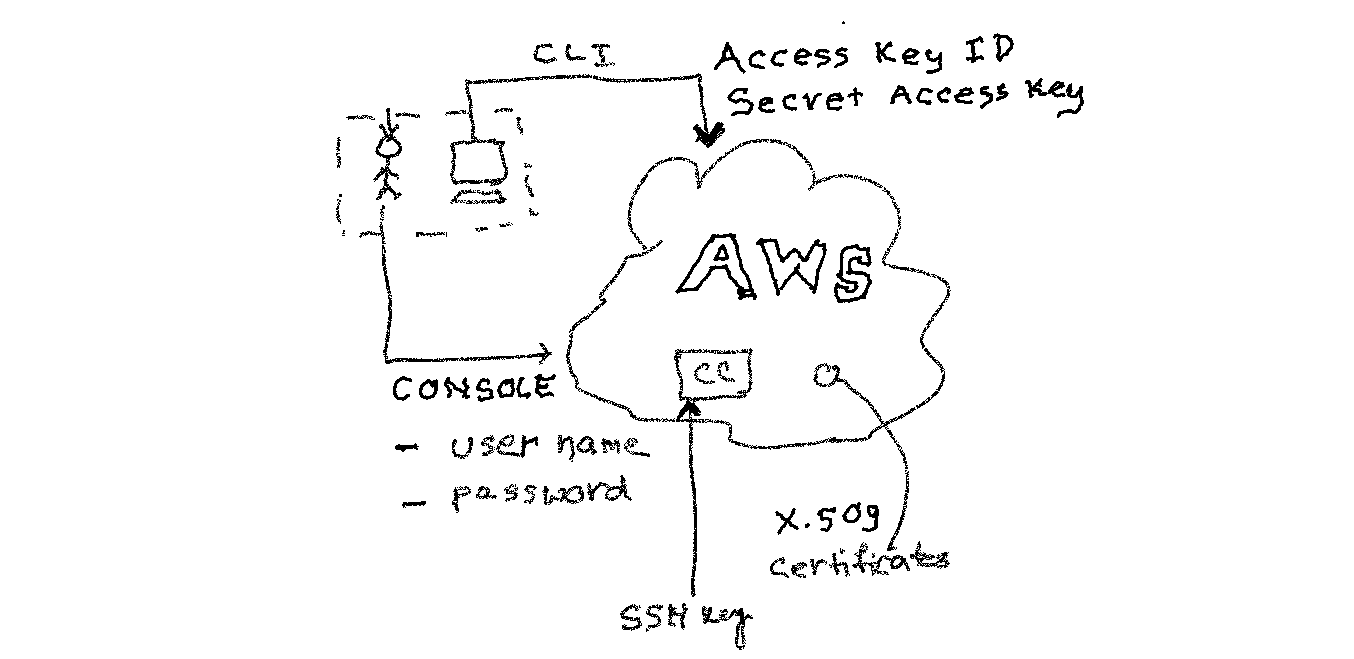 CLI
Access Key ID
Secret Access Key
AWS
CC
CONSOLE
- user name
- password
X.509
Certificates
SSH Key